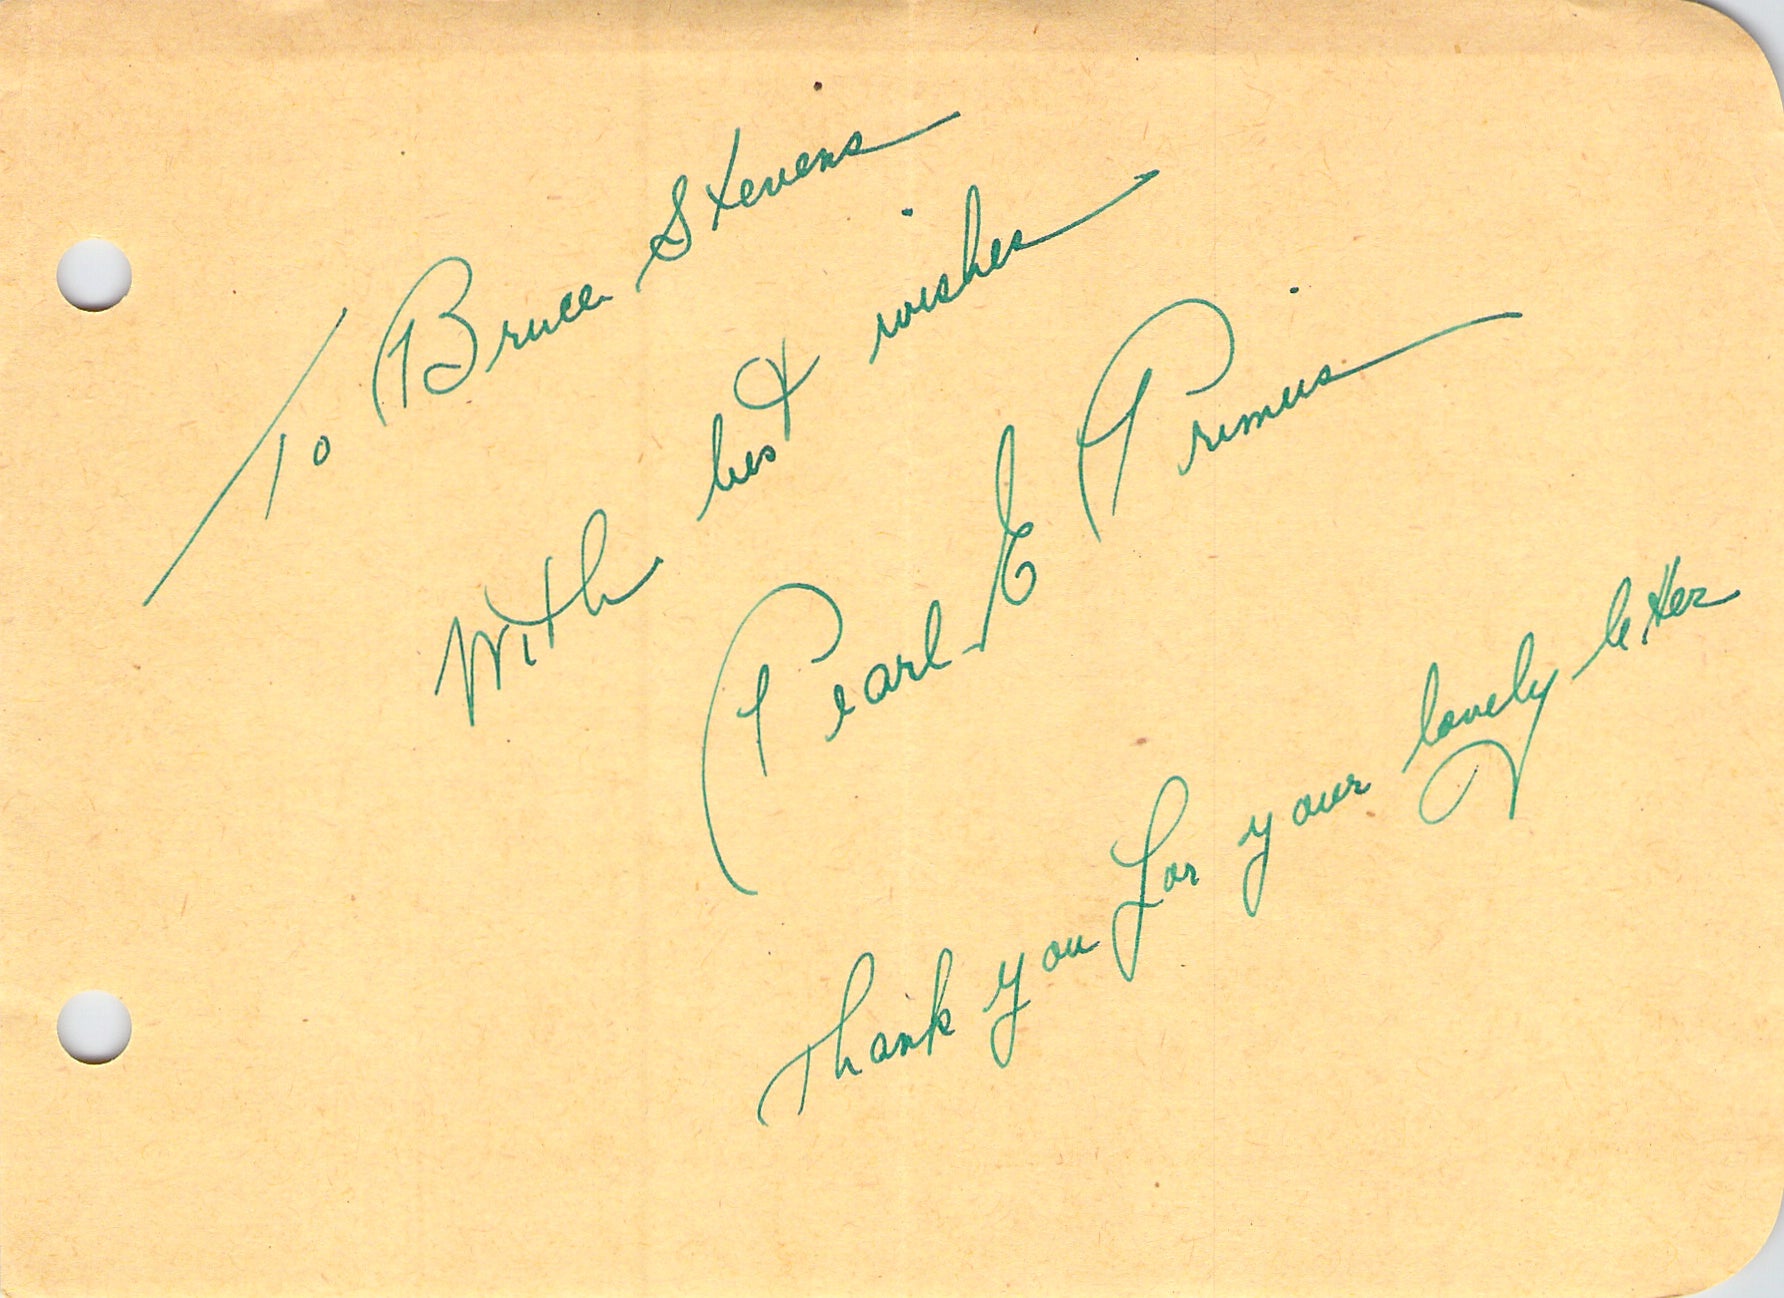 To Bruce Stevens
With best wishes
Pearl E Primus
Thank you for your lovely letter